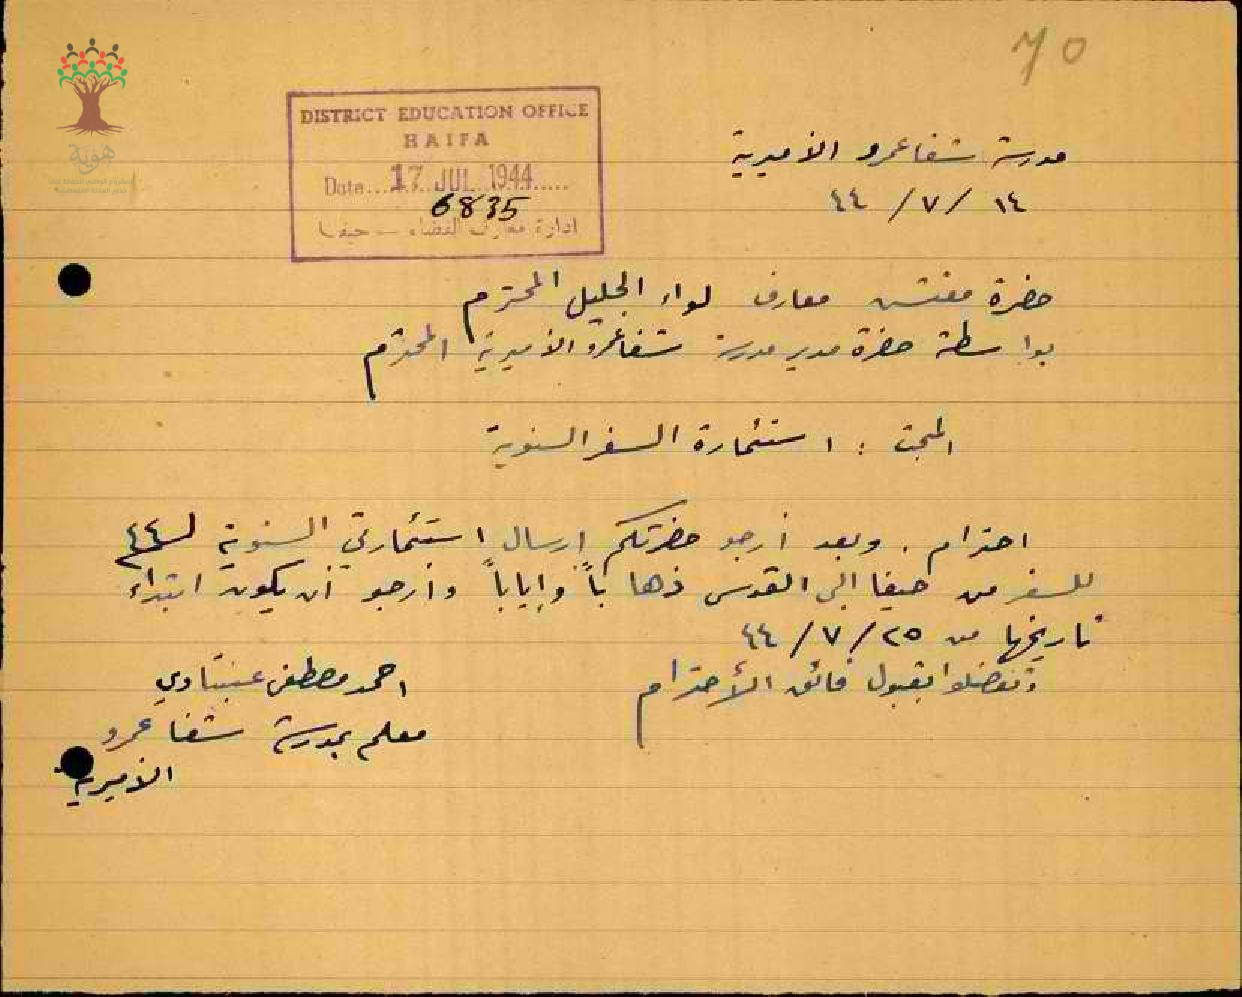 70
DISTRICT EDUCATION OFFICE
HAIFA
Date....17 JUL 1944.....
6835
ادارة معارف القضاء - حيفا
هوية
مدرسة شفاعمرو الأميرية
١٤ /٧/ ٤٤
حضرة مفتش معارف لواء الجليل المحترم
بواسطة حضرة مدير مدرسة شفاعمرو الأميرية المحترم
المبحث : استئمارة السفر السنوية
احترام . وبعد أرجو حضرتكم إرسال استئمارتي السنوية لـ ٤٤
للسفر من حيفا الى القدس ذهاباً وإياباً وأرجو أن يكون ابتداء
تاريخها من ٢٥ /٧/ ٤٤
وتفضلوا بقبول فائق الأحترام
احمد مصطفى عبتاوي
معلم بمدرسة شفا عمرو
الأميرية